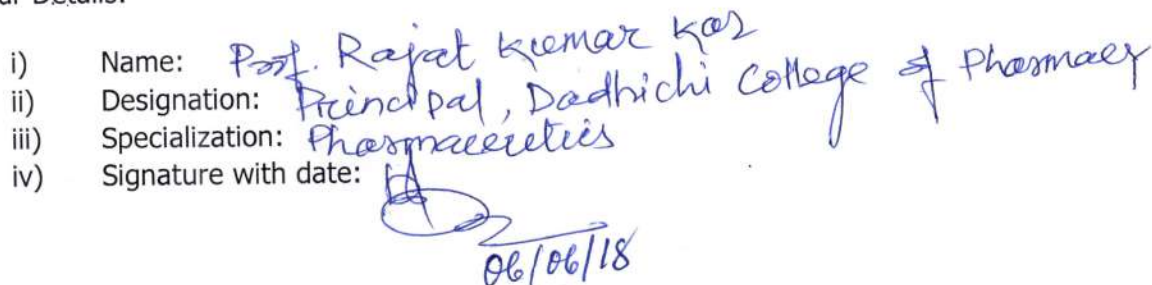 Details:
i) Name: Prof. Rajat Kumar Kar
ii) Designation: Principal, Dadhichi College of Pharmacy
iii) Specialization: Pharmaceutics
iv) Signature with date:
06/06/18